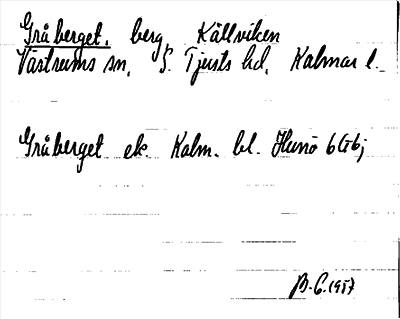 Gråberget, berg Källviken
Västrums sn. S. Tjusts hd. Kalmar l.
Gråberget ek. Kalm. bl. Hunö 6G6j
B.C. 1957